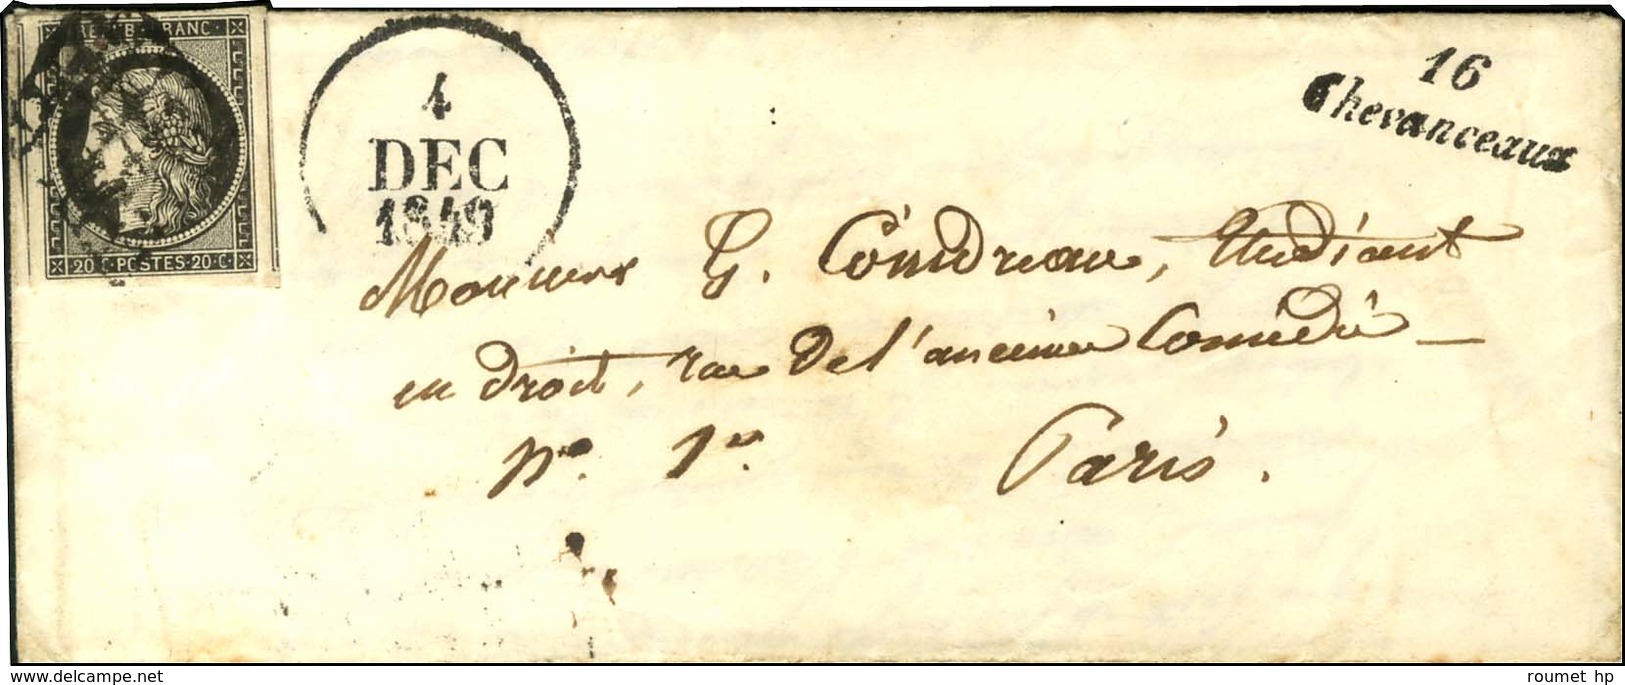 REPUB. FRANC.
20 C. POSTES. 20 C.
4
DEC
1849
16
Chevanceaux
Monsieur G. Coindreau, Etudiant
en droit, rue de l'ancienne Comédie
n° 1er. Paris.
www.delcampe.net
roumet hp